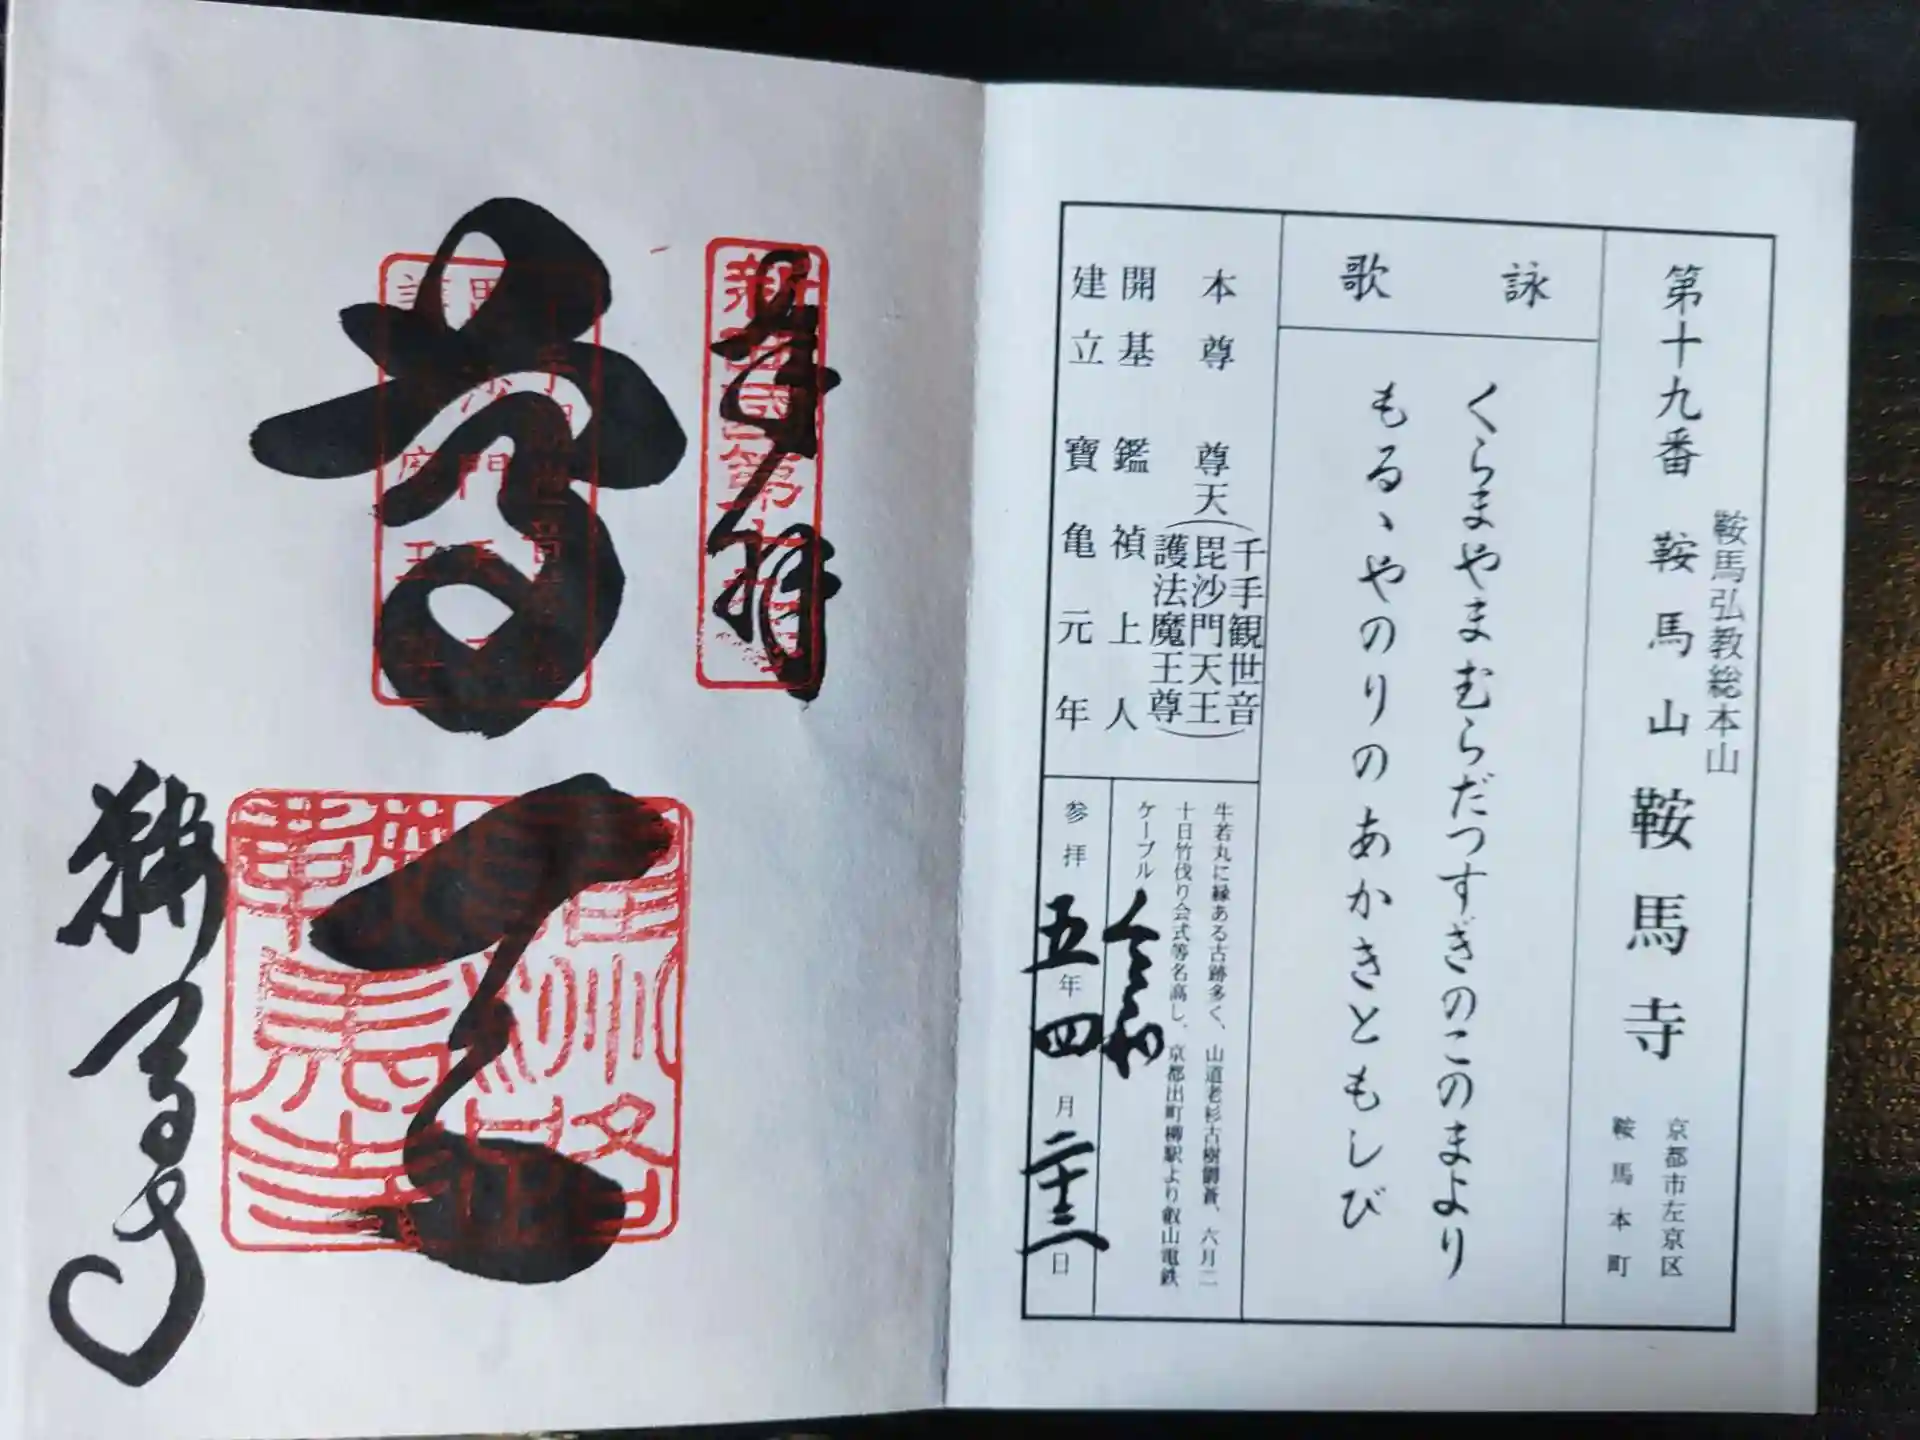 鞍馬弘教総本山
第十九番 鞍馬山 鞍馬寺
京都市左京区
鞍馬本町
詠歌
くらまやまむらだつすぎのこのまより
もるゝやのりのあかきともしび
本尊 尊天
(千手観世音
毘沙門天王
護法魔王尊)
開基 鑑禎上人
建立 寶亀元年
牛若丸に縁ある古跡多く、山道老杉古樹鬱蒼、六月二
十日竹伐り会式等名高し、京都出町柳駅より叡山電鉄
ケーブル
令和
参拝 五年四月二十三日
奉拝
新西国第十九番
尊天
鞍馬寺